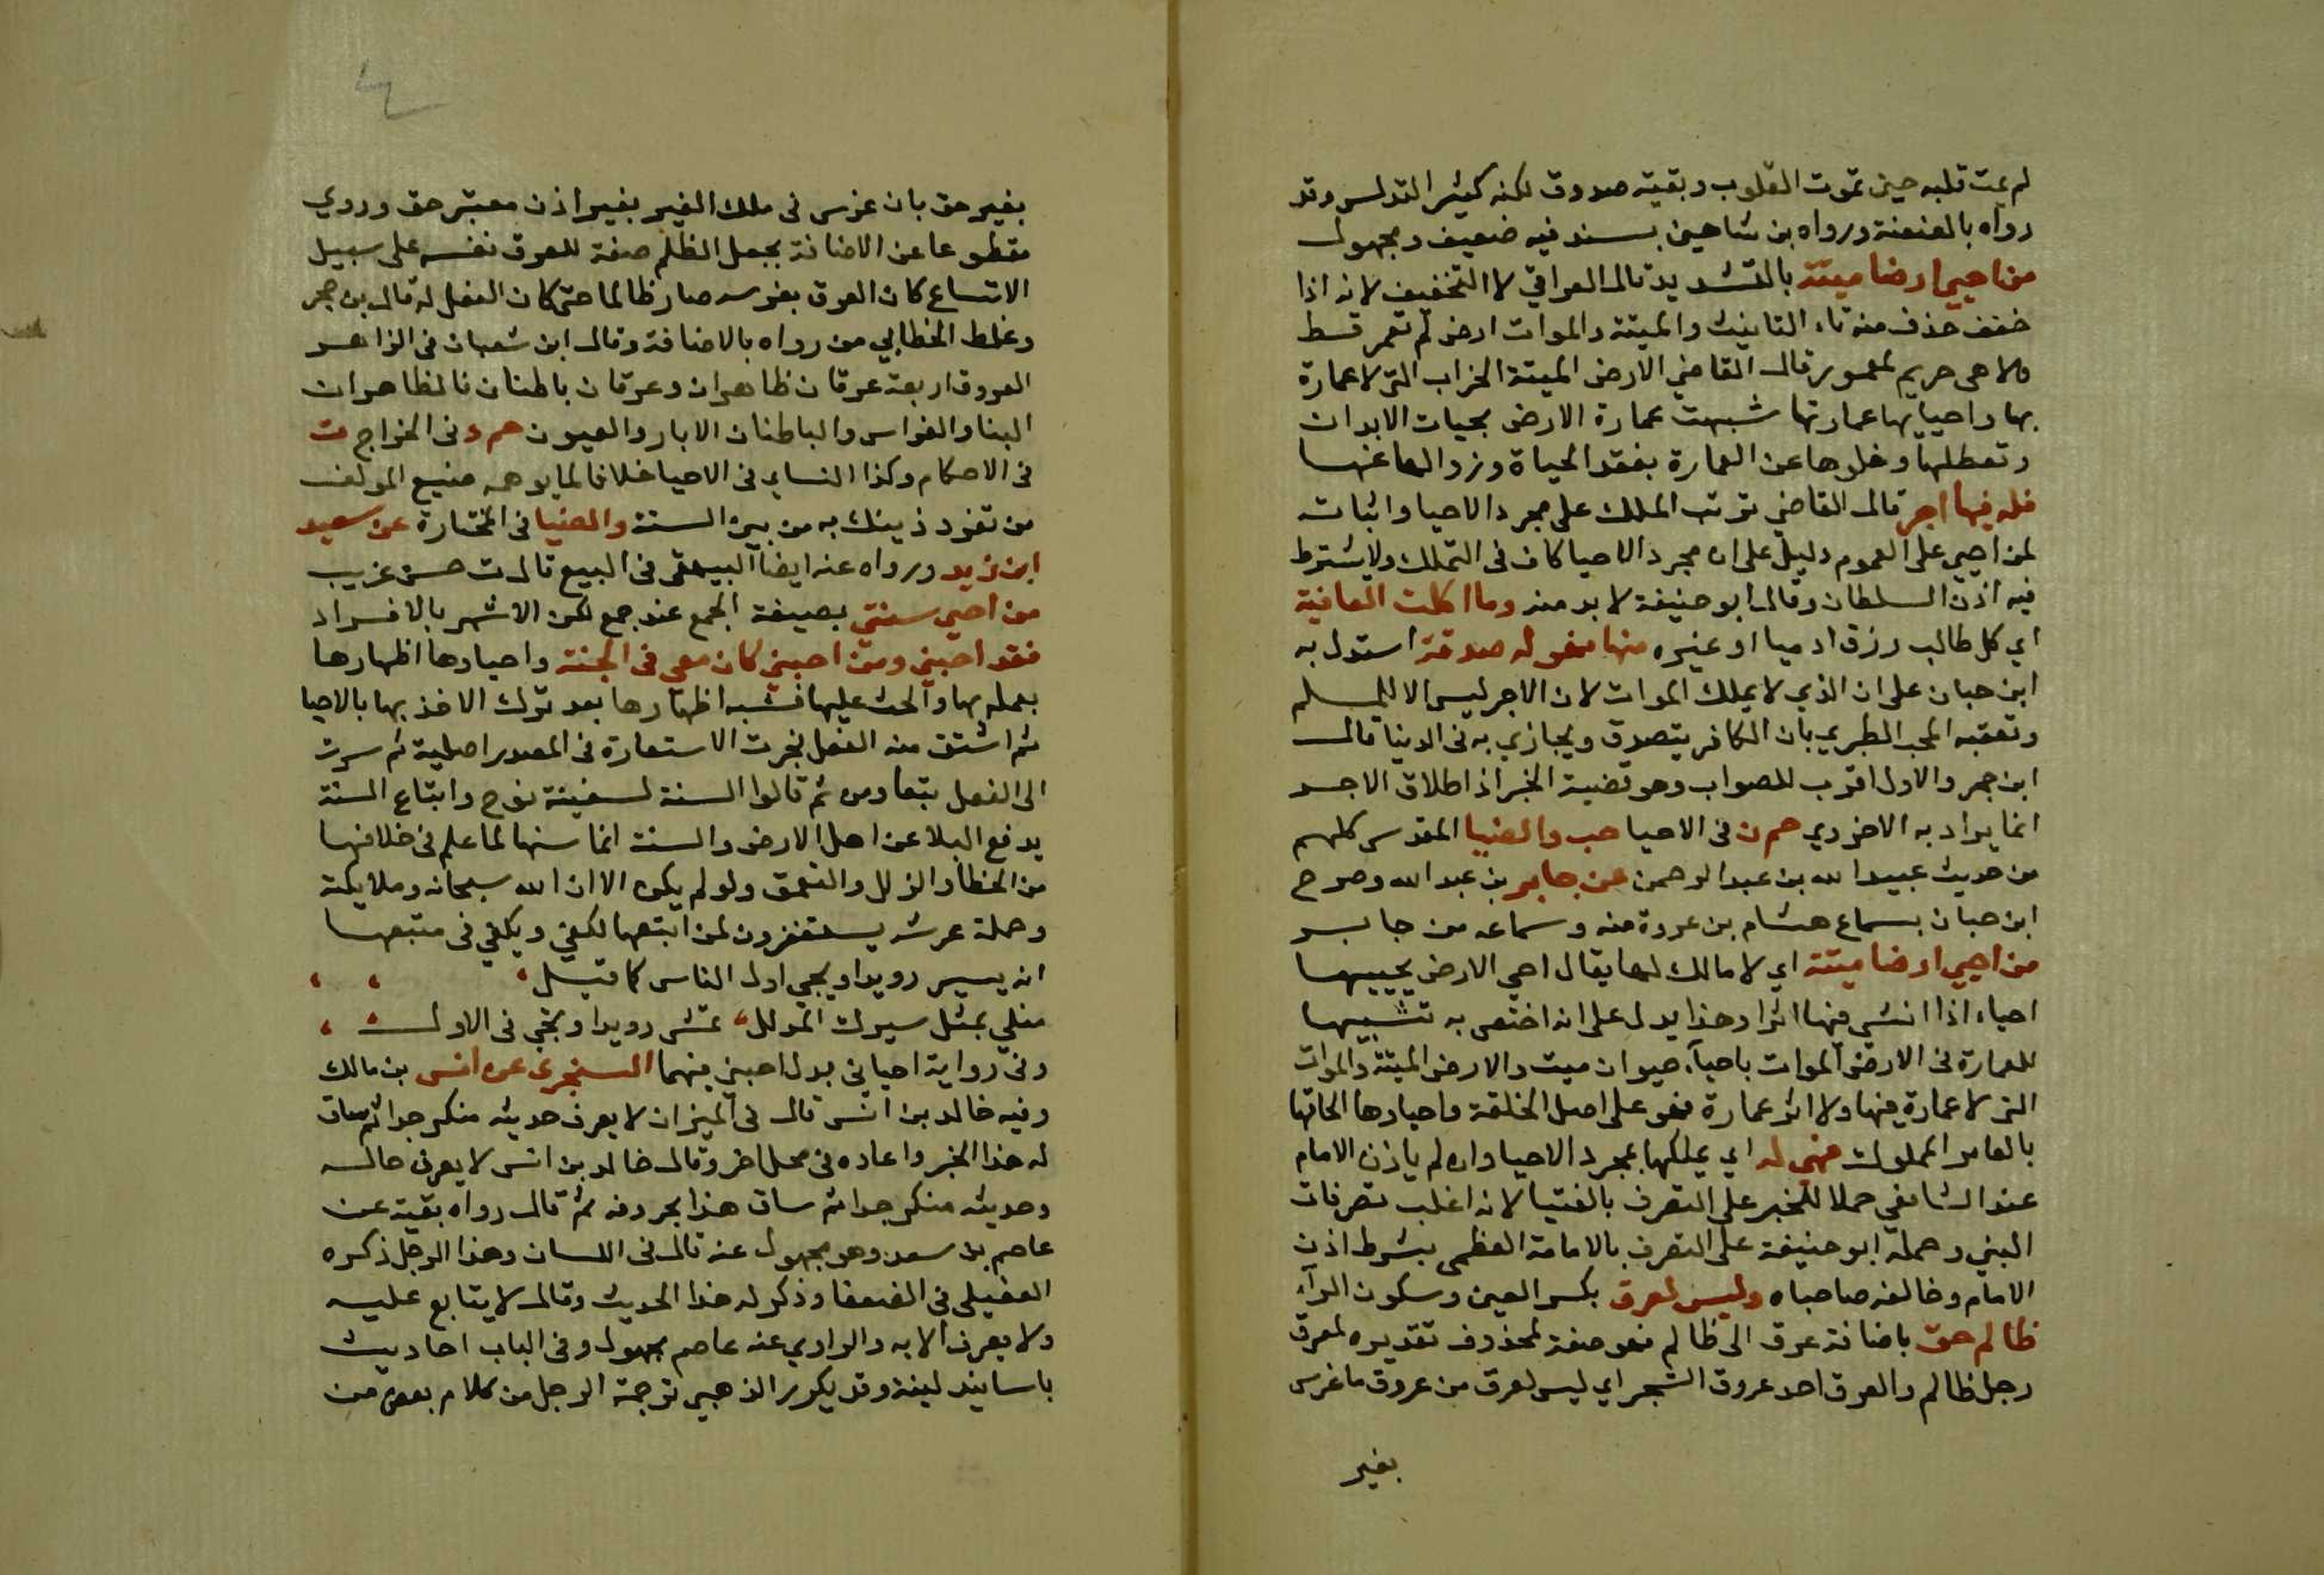 لم يمت قلبه حين تموت القلوب وبقية صدوق لكنه كثير التدليس وقد
رواه بالعنعنة ورواه بن شاهين بسند فيه ضعيف ومجهول
من احيي ارضا ميتة بالتشديد قال العراقي لا التخفيف لانه اذا
خفف حذف منه تاء التانيث والميتة والموات ارض لم تعمر قط
ولا هى حريم لمعمور قال القاضي الارض الميتة الخراب التي لا عمارة
بها واحياپها عمارتها شبهت عمارة الارض بحيات الابدان
وتعطلها وخلوها عن العمارة بفقد الحياة وزوالها عنها
فله فيها اجر قال القاضي ترتب الملك على مجرد الاحيا واثباته
لمن احيي على العموم دليل على ان مجرد الاحيا كاف فى التملك ولا يشترط
فيه اذن السلطان وقال ابو حنيفة لا بد منه وما اكلت العافية
اي كل طالب رزق ادميا او غيره منها فهو له صدقة استدل به
ابن حبان على ان الذي لا يملك الموات لان الاجر ليس الا للمسلم
وتعقبه المحب الطبري بان الكافر يتصدق ويجازي به فى الدنيا قال
ابن حجر والاول اقرب للصواب وهو قضية الخبر اذ اطلاق الاجر
انما يراد به الاخروي حم ن فى الاحيا حب والضيا المقدسي كلهم
من حديث عبيد الله بن عبد الرحمن عن جابر بن عبد الله وصرح
ابن حبان بسماع هشام بن عروة منه وسماعه من جابر
من احيي ارضا ميتة اي لا مالك لها يقال احي الارض يحييها
احياء اذا انشي فيها اثرا وهذا يدل على انه اختص به تشبيها
للعمارة فى الارض الموات باحياء حيوان ميت والارض الميتة والموات
التى لا عمارة فيها ولا اثر عمارة فهو على اصل الخلقة واحياوها الحاقها
بالعامر المملوك فهي له اي يملكها بمجرد الاحيا وان لم ياذن الامام
عند الشافعي حملا للخبر على التصرف بالفتيا لانه اغلب تصرفات
النبي وحمله ابو حنيفة على التصرف بالامامة العظمى بشرط اذن
الامام وخالفه صاحباه وليس لعرق بكسر العين وسكون الراء
ظالم حق باضافة عرق الى ظالم فهو صفة لمحذوف تقديره لعرق
رجل ظالم والعرق احد عروق الشجر اي ليس لعرق من عروق ما غرس
بغير
بغير حق بان غرس فى ملك الغير بغير اذن معتبر حق وروي
مقطوعا عن الاضافة بجعل الظلم صفة للعرق نفسه على سبيل
الاتساع كان العرق بغرسه صار ظالما حتى كان الفعل له قال بن حجر
وغلط الخطابي من رواه بالاضافة وقال ابن شعبان فى الزاهر
العروق اربعة عرقان ظاهران وعرقان باطنان فالظاهران
البنا والغراس والباطنان الابار والعيون حم د فى الخراج ت
فى الاحكام وكذا النساي فى الاحيا خلافا لما يوهمه صنيع المولف
من تفرد ذينك به من بين الستة والضيا فى المختارة عن سعيد
ابن زيد ورواه عنه ايضا البيهقى فى البيع قال ت حسن غريب
من احيي سنتي بصيغة الجمع عند جمع لكن الاشهر بالافراد
فقد احبني ومن احبني كان معى فى الجنة واحياوها اظهارها
بعمله بها والحث عليها فشبه اظهارها بعد ترك الاخذ بها بالاحيا
ثم اشتق منه الفعل فجرت الاستعارة فى المصدر اصلية ثم سرت
الى الفعل تبعا ومن ثم قالوا السنة لسفينة نوح واتباع السنة
يدفع البلا عن اهل الارض والسنة انما سنها لما علم فى خلافها
من الخطا والزلل والتعمق ولو لم يكن الا ان الله سبحانه وملايكته
وحملة عرشه يستغفرون لمن اتبعها لكفي ويكفي فى متبعها
انه يسير رويدا ويجي اول الناس كما قيل
من لي بمثل سيرك المدلل تمشى رويدا وتجي فى الاول
وفى رواية احياني بدل احبني فيهما السنجرى عن انس بن مالك
وفيه خالد بن انس قال فى الميزان لا يعرف حديثه منكر جدا ثم ساق
له هذا الخبر واعاده فى محل اخر وقال خالد بن انس لا يعرف حاله
وحديثه منكر جدا ثم ساق هذا بحروفه ثم قال رواه بقية عن
عاصم بن سعد وهو مجهول عنه قال فى اللسان وهذا الرجل ذكره
العقيلى فى الضعفا وذكر له هذا الحديث وقال لا يتابع عليه
ولا يعرف الا به والراوي عنه عاصم مجهول وفى الباب احاديث
باسانيد لينة وقد يكرر الذهبي ترجمة الرجل من كلام بعض من